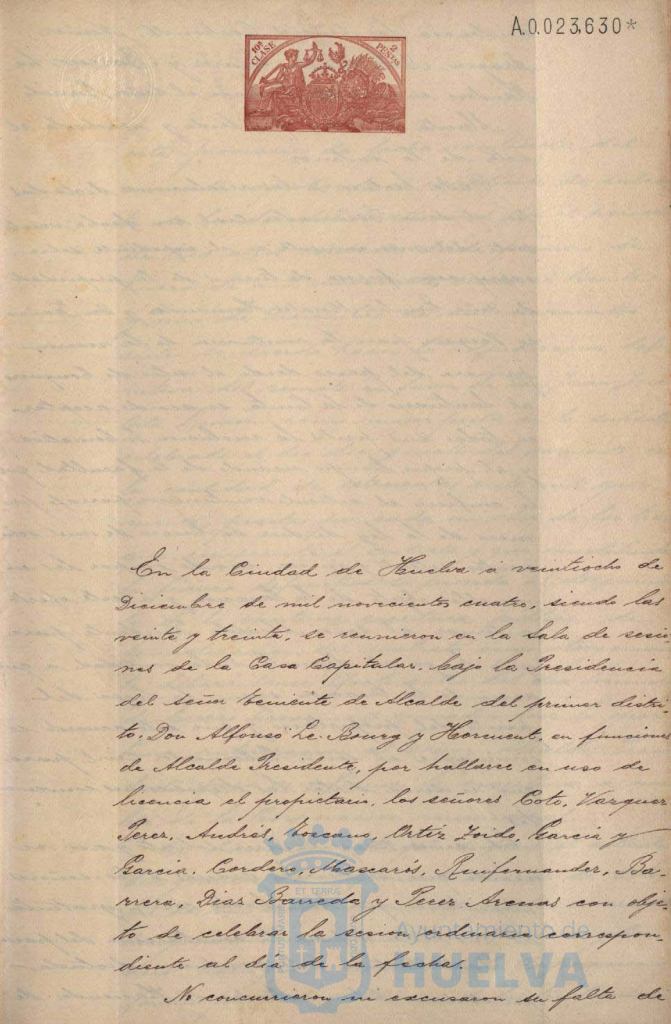 A.0.023,630*
10ª CLASE
2 PESETAS
En la Ciudad de Huelva á veintiocho de
Diciembre de mil novecientos cuatro, siendo las
veinte y treinta, se reunieron en la Sala de sesio-
nes de la Casa Capitular, bajo la Presidencia
del señor Teniente de Alcalde del primer distri-
to, Don Alfonso Le-Bourg y Horment, en funciones
de Alcalde Presidente, por hallarse en uso de
licencia el propietario, los señores Coto, Vazquez
Perez, Andrés, Toscano, Ortiz Zoido, Garcia y
Garcia, Cordero, Mascarós, Ruifernandez, Ba-
rrera, Diaz Barreda y Perez Arenas con obje-
to de celebrar la sesion ordinaria correspon-
diente al dia de la fecha.
No concurrieron ni excusaron su falta de
Ayuntamiento de
HUELVA